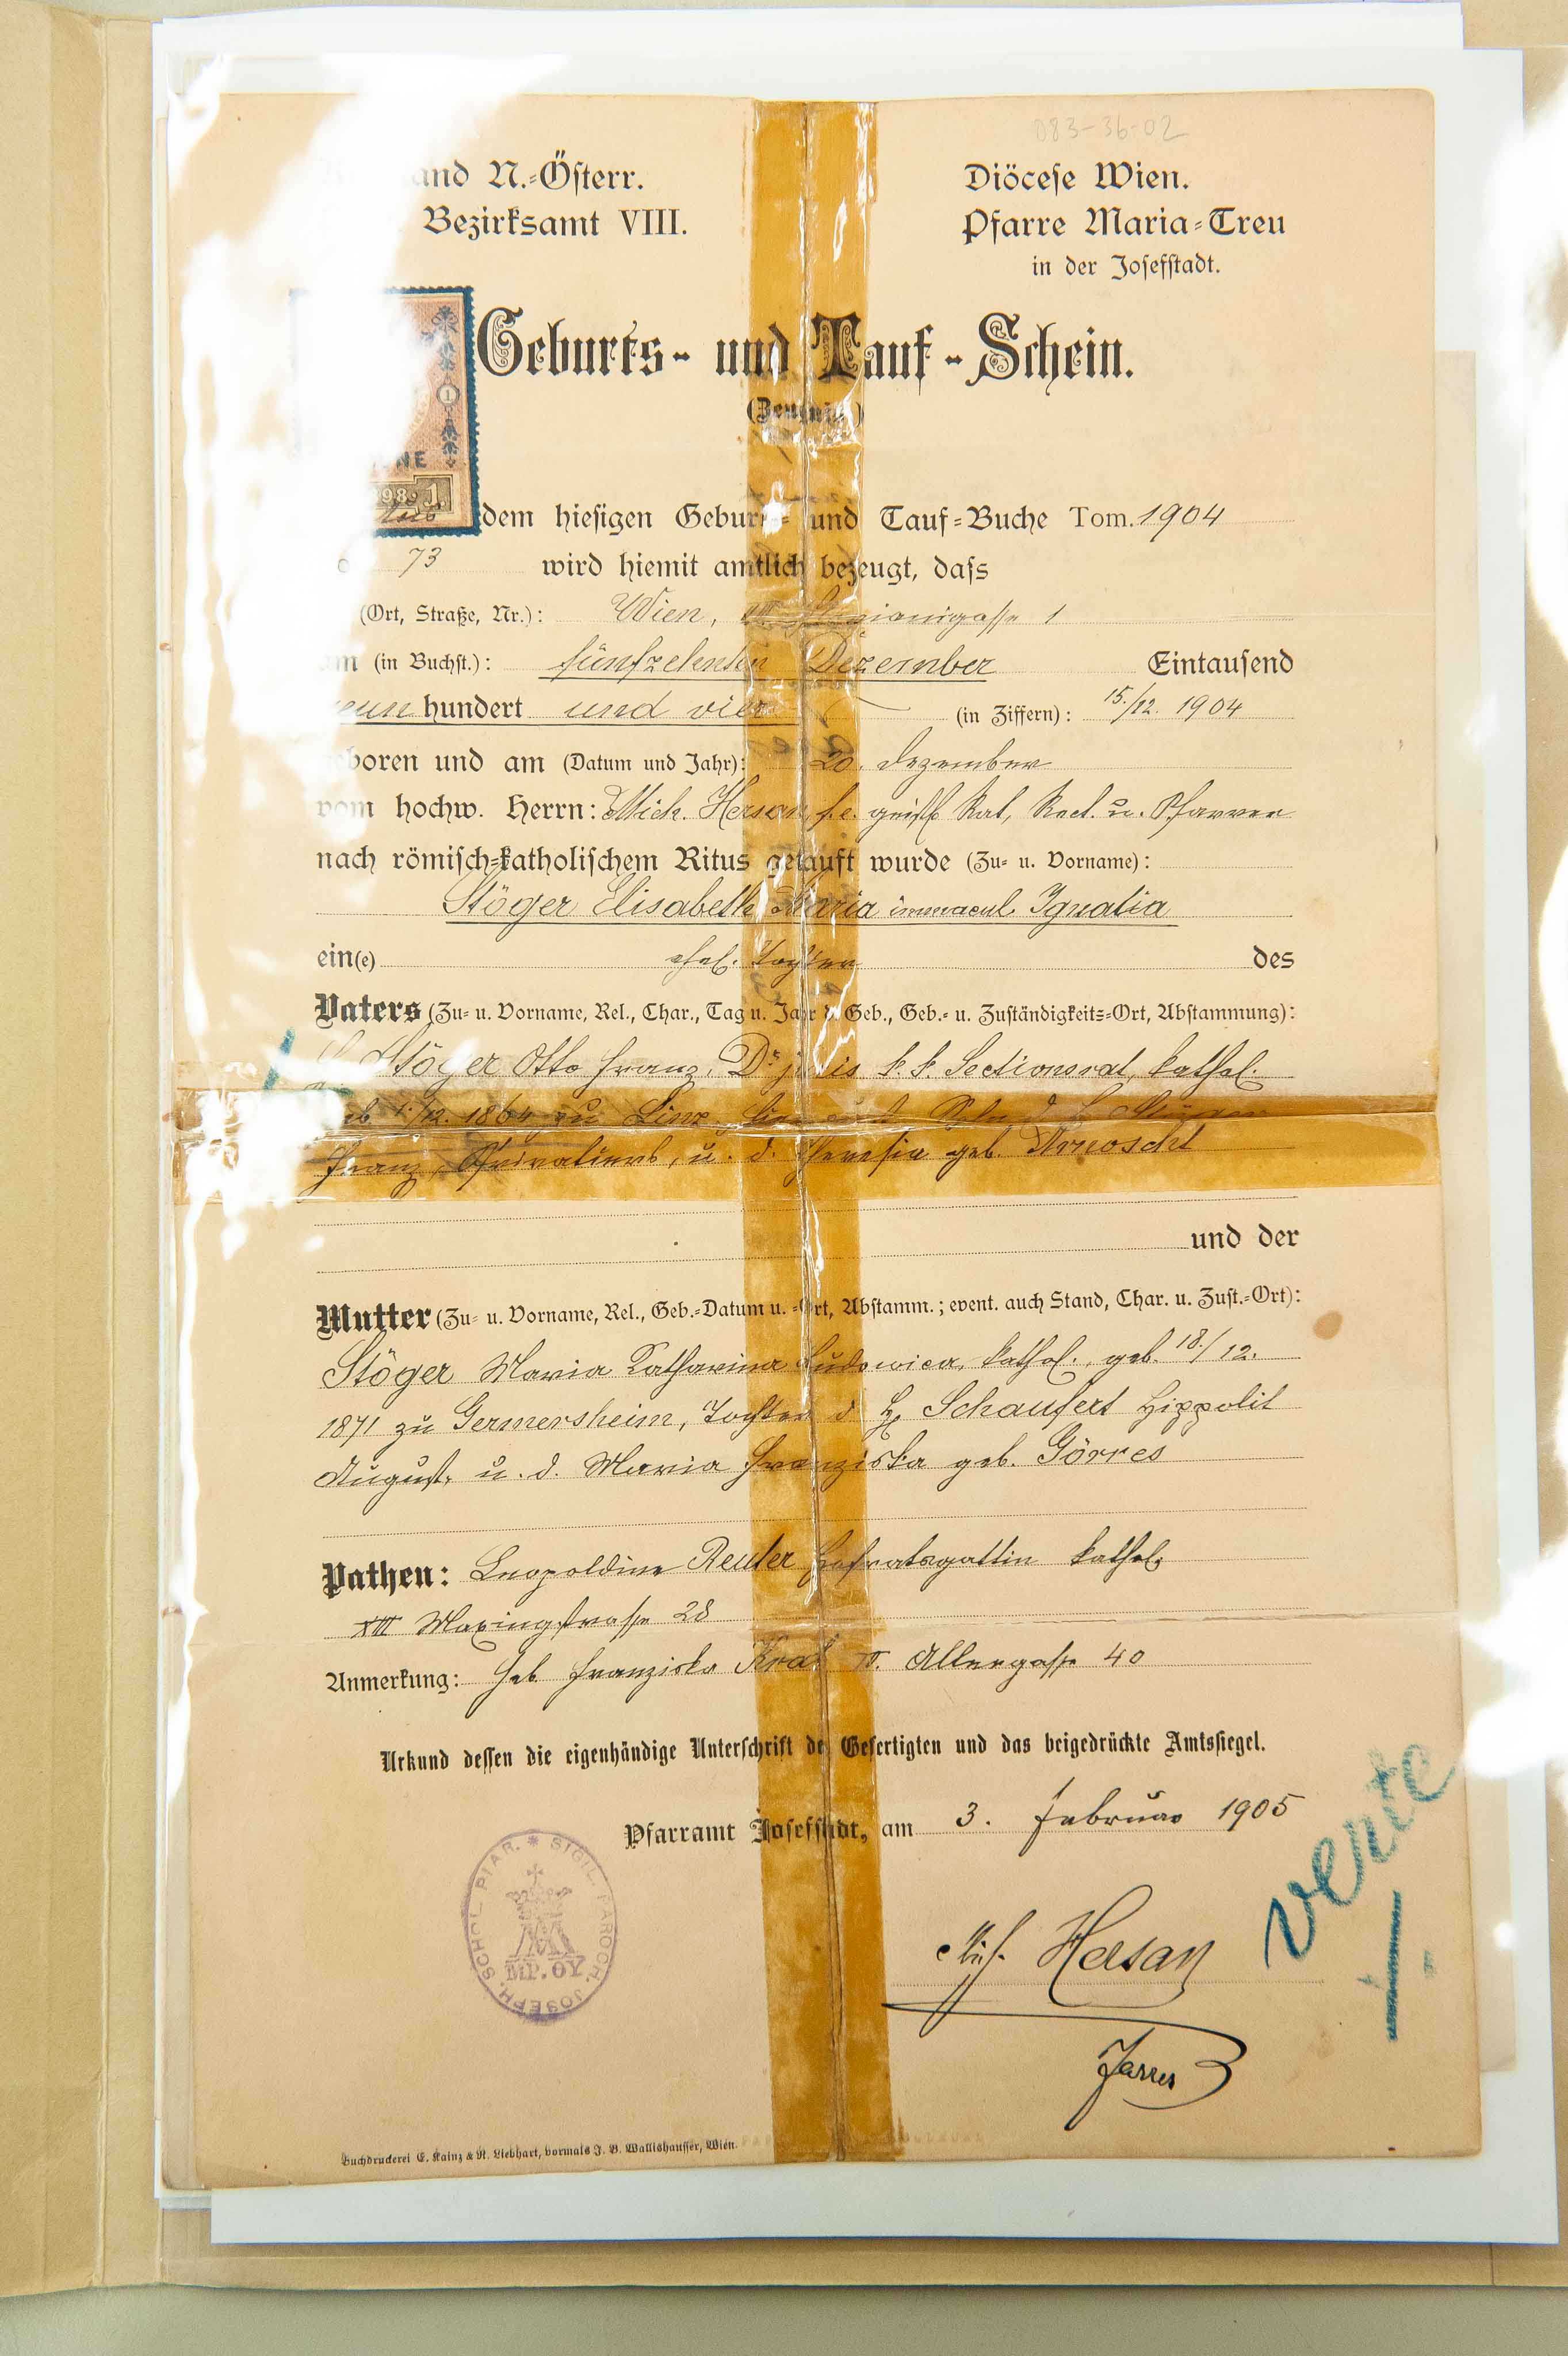 083-36-02
and N.-Österr.
Diöcese Wien.
Bezirksamt VIII.
Pfarre Maria-Treu
in der Josefstadt.
Geburts- und Tauf-Schein.
(Zeugnis.)
NE
898 1
dem hiesigen Geburts- und Tauf-Buche Tom. 1904
73 wird hiemit amtlich bezeugt, dass
(Ort, Straße, Nr.): Wien, VIII 1
(in Buchst.): fünfzehnten Dezember Eintausend
neun hundert und vier (in Ziffern): 15./12. 1904
geboren und am (Datum und Jahr): 20. Dezember
vom hochw. Herrn: Mich. Hersan f. e. geistl. Rat, Rect. u. Pfarrer
nach römisch-katholischem Ritus getauft wurde (Zu- u. Vorname):
Stöger Elisabeth Maria immacul. Ignatia
ein(e) ehel. Tochter des
Vaters (Zu- u. Vorname, Rel., Char., Tag u. Jahr d. Geb., Geb.- u. Zuständigkeits-Ort, Abstammung):
Stöger Otto Franz, Dr. juris k. k. Sectionsrat, kathol.
geb. 1./12. 1864 zu Linz Sohn d. H. Stöger
Franz, Privatiers, u. d. Theresia geb.
und der
Mutter (Zu- u. Vorname, Rel., Geb.-Datum u. -Ort, Abstamm.; event. auch Stand, Char. u. Zust.-Ort):
Stöger Maria Katharina Ludowica, kathol., geb. 18./12.
1871 zu Germersheim, Tochter d. H. Schaufert Hippolit
August, u. d. Maria Franziska geb. Görres
Pathen: Leopoldine Reuter Hofratsgattin kathol.
XIII Maxingstrasse 28
Anmerkung: Heb. Franziska 40
Urkund dessen die eigenhändige Unterschrift des Gefertigten und das beigedrückte Amtssiegel.
Pfarramt Josefstadt, am 3. Februar 1905
SIGIL. PAROCH. JOSEPH. SCHOL. PIAR.
MP. OY
Mich. Hersan
Pfarrer
Buchdruckerei E. Kainz & R. Liebhart, vormals J. B. Wallishausser, Wien.